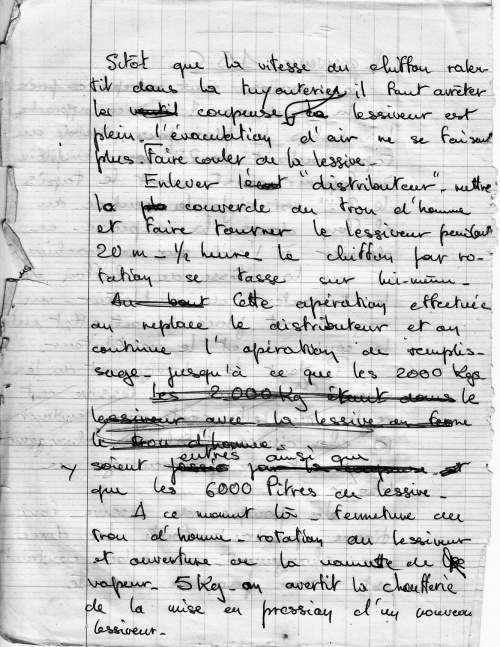 Sitôt que la vitesse du chiffon ralen-
tit dans la tuyauteries il faut arrêter
la coupeuse, le lessiveur est
plein. l'évacuation d'air ne se faisant
plus. Faire couler de la lessive.
Enlever le "distributeur". mettre
le couvercle du trou d'homme
et faire tourner le lessiveur pendant
20 m - ½ heure le chiffon par ro-
tation se tasse sur lui-même.
Au bout Cette opération effectuée
on replace le distributeur et on
continue l'opération de remplis-
sage. jusqu'à ce que les 2000 Kgs
les 2.000 Kg étant dans le
lessiveur avec la lessive on ferme
le trou d'homme.
entrés ainsi que
soient par la coupeuse et
que les 6000 litres de lessive.
A ce moment là - fermeture du
trou d'homme - rotation du lessiveur
et ouverture de la vannette de
vapeur - 5 Kg - on avertit la chaufferie
de la mise en pression d'un nouveau
lessiveur.